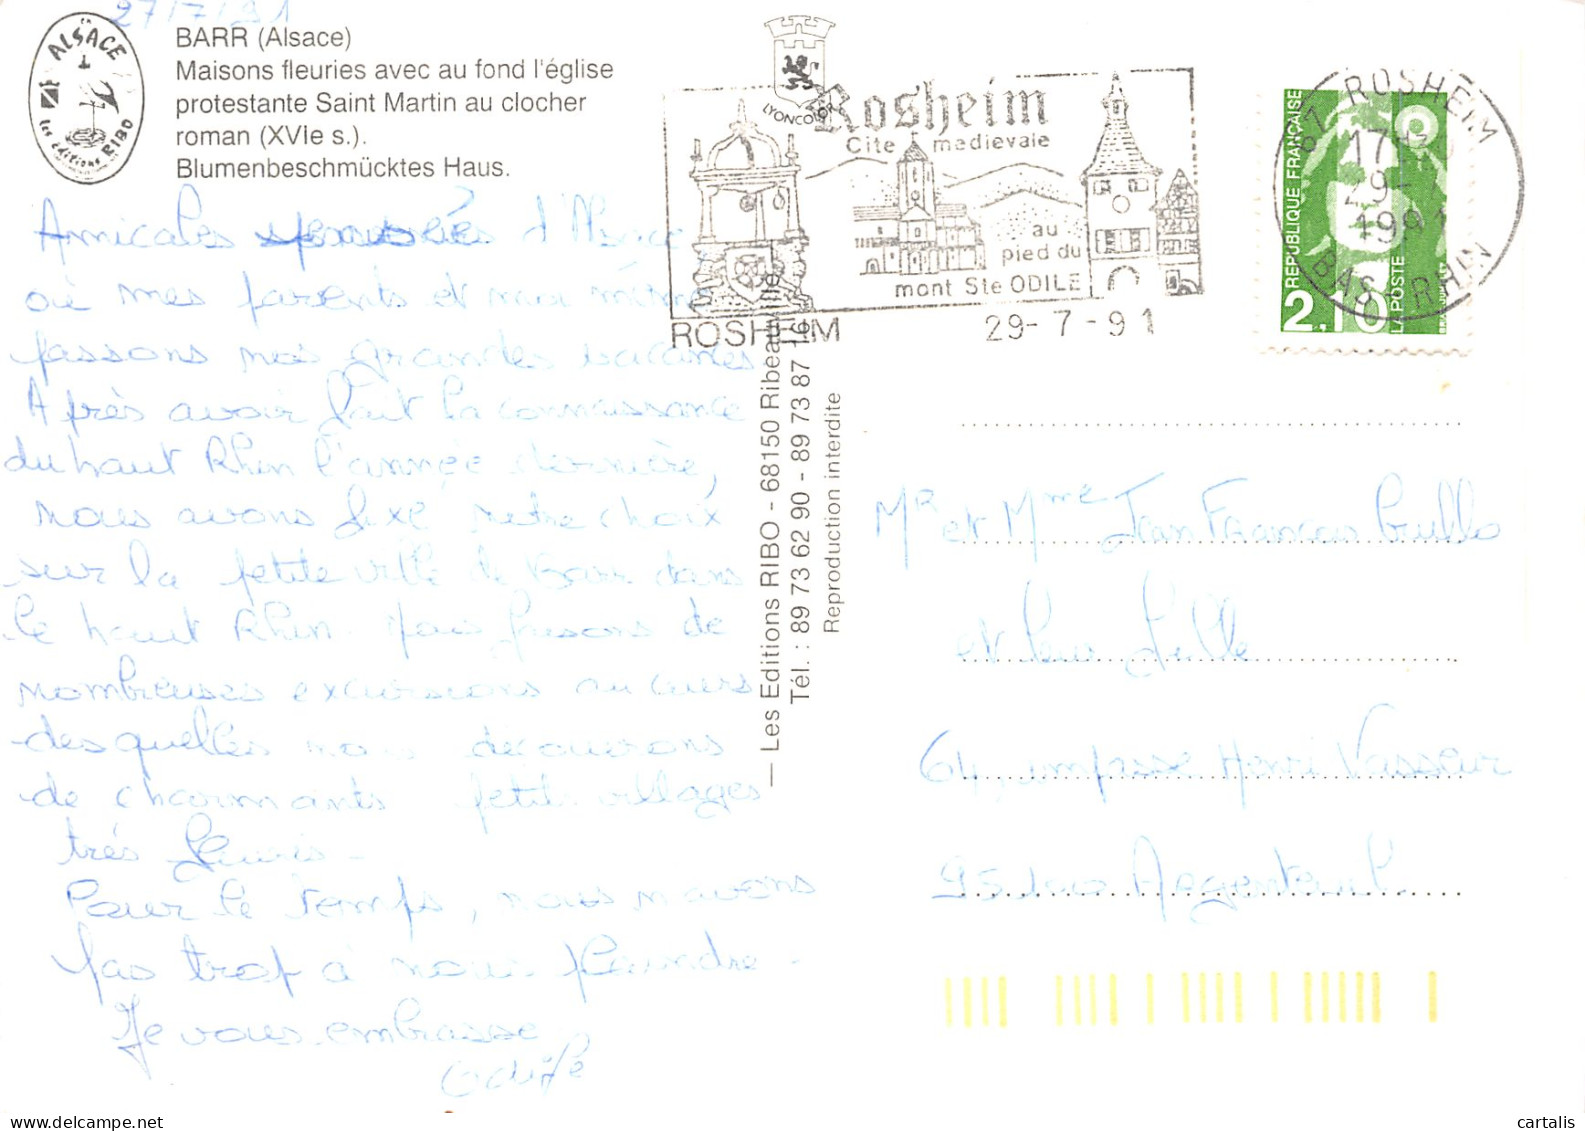 27/7/91
en
ALSACE
les éditions RIBO
BARR (Alsace)
Maisons fleuries avec au fond l'église
protestante Saint Martin au clocher
roman (XVIe s.).
Blumenbeschmücktes Haus.
Amicales pensées d'Alsace
où mes parents et moi même
passons nos grandes vacances.
Après avoir fait la connaissance
du haut Rhin l'année dernière,
nous avons fixé notre choix
sur la petite ville de Barr dans
le haut Rhin. Nous faisons de
nombreuses excursions au cours
desquelles nous découvrons
de charmants petits villages
très fleuris.
Pour le temps, nous n'avons
pas trop à nous plaindre.
Je vous embrasse
Odile
LYONCOLOR
Rosheim
Cite medievale
au
pied du
mont Ste ODILE
ROSHEIM
29-7-91
67 ROSHEIM
17H
29-7
1991
BAS RHIN
REPUBLIQUE FRANÇAISE
2,10
LA POSTE
— Les Editions RIBO - 68150 Ribeauvillé
Tél. : 89 73 62 90 - 89 73 87 16
Reproduction interdite
Mr et Mme Jean François
et leur fille
64, impasse Henri Vasseur
95100 Argenteuil
cartalis